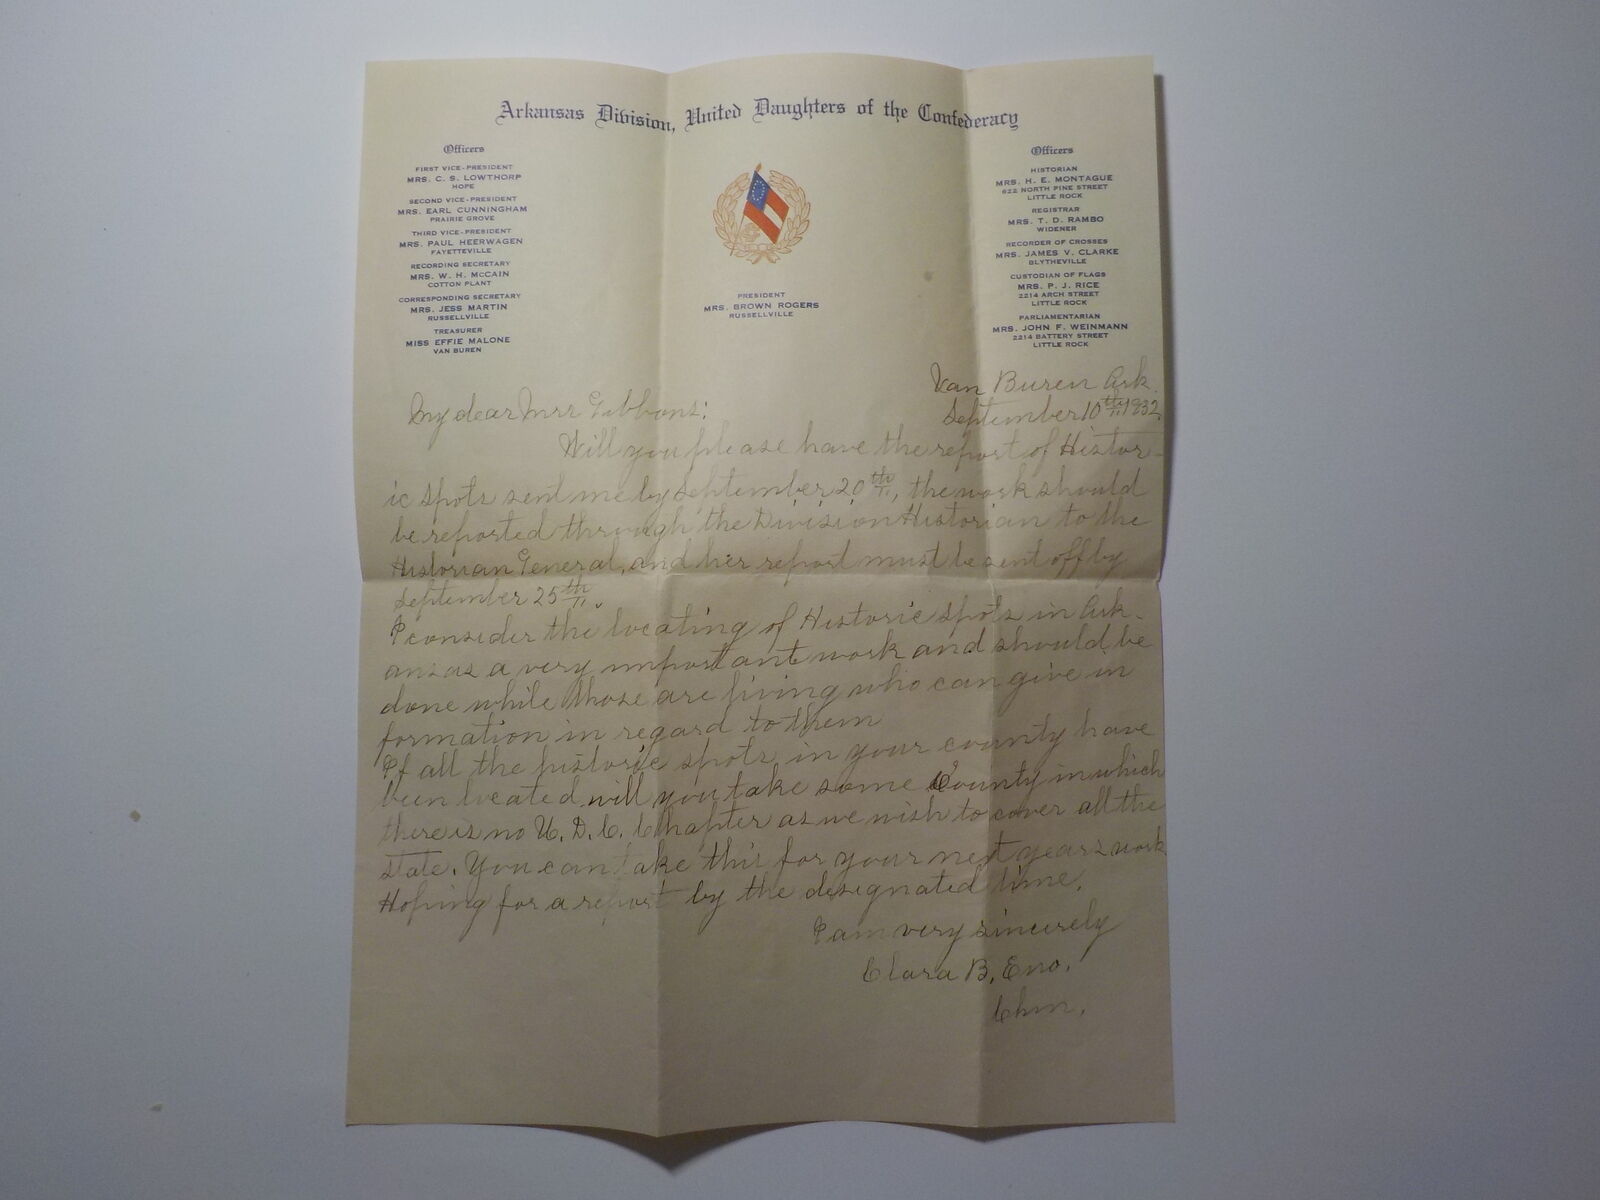 Arkansas Division, United Daughters of the Confederacy
Officers
FIRST VICE-PRESIDENT
MRS. C. S. LOWTHORP
HOPE
SECOND VICE-PRESIDENT
MRS. EARL CUNNINGHAM
PRAIRIE GROVE
THIRD VICE-PRESIDENT
MRS. PAUL HEERWAGEN
FAYETTEVILLE
RECORDING SECRETARY
MRS. W. H. McCAIN
COTTON PLANT
CORRESPONDING SECRETARY
MRS. JESS MARTIN
RUSSELLVILLE
TREASURER
MISS EFFIE MALONE
VAN BUREN
PRESIDENT
MRS. BROWN ROGERS
RUSSELLVILLE
Officers
HISTORIAN
MRS. H. E. MONTAGUE
622 NORTH PINE STREET
LITTLE ROCK
REGISTRAR
MRS. T. D. RAMBO
WIDENER
RECORDER OF CROSSES
MRS. JAMES V. CLARKE
BLYTHEVILLE
CUSTODIAN OF FLAGS
MRS. P. J. RICE
2214 ARCH STREET
LITTLE ROCK
PARLIAMENTARIAN
MRS. JOHN F. WEINMANN
2214 BATTERY STREET
LITTLE ROCK
Van Buren Ark.
September 10th 1932
My dear Mrs Gibbons:
Will you please have the report of Histor-
ic spots sent me by September 20th, the work should
be reported through the Division Historian to the
Historian General, and her report must be sent off by
September 25th.
I consider the locating of Historic spots in Ark-
ansas a very important work and should be
done while those are living who can give in
formation in regard to them
If all the historic spots in your county have
been located will you take some County in which
there is no U. D. C. Chapter as we wish to cover all the
state. You can take this for your next years work
Hoping for a report by the designated time.
I am very sincerely
Clara B. Eno.
Chm.